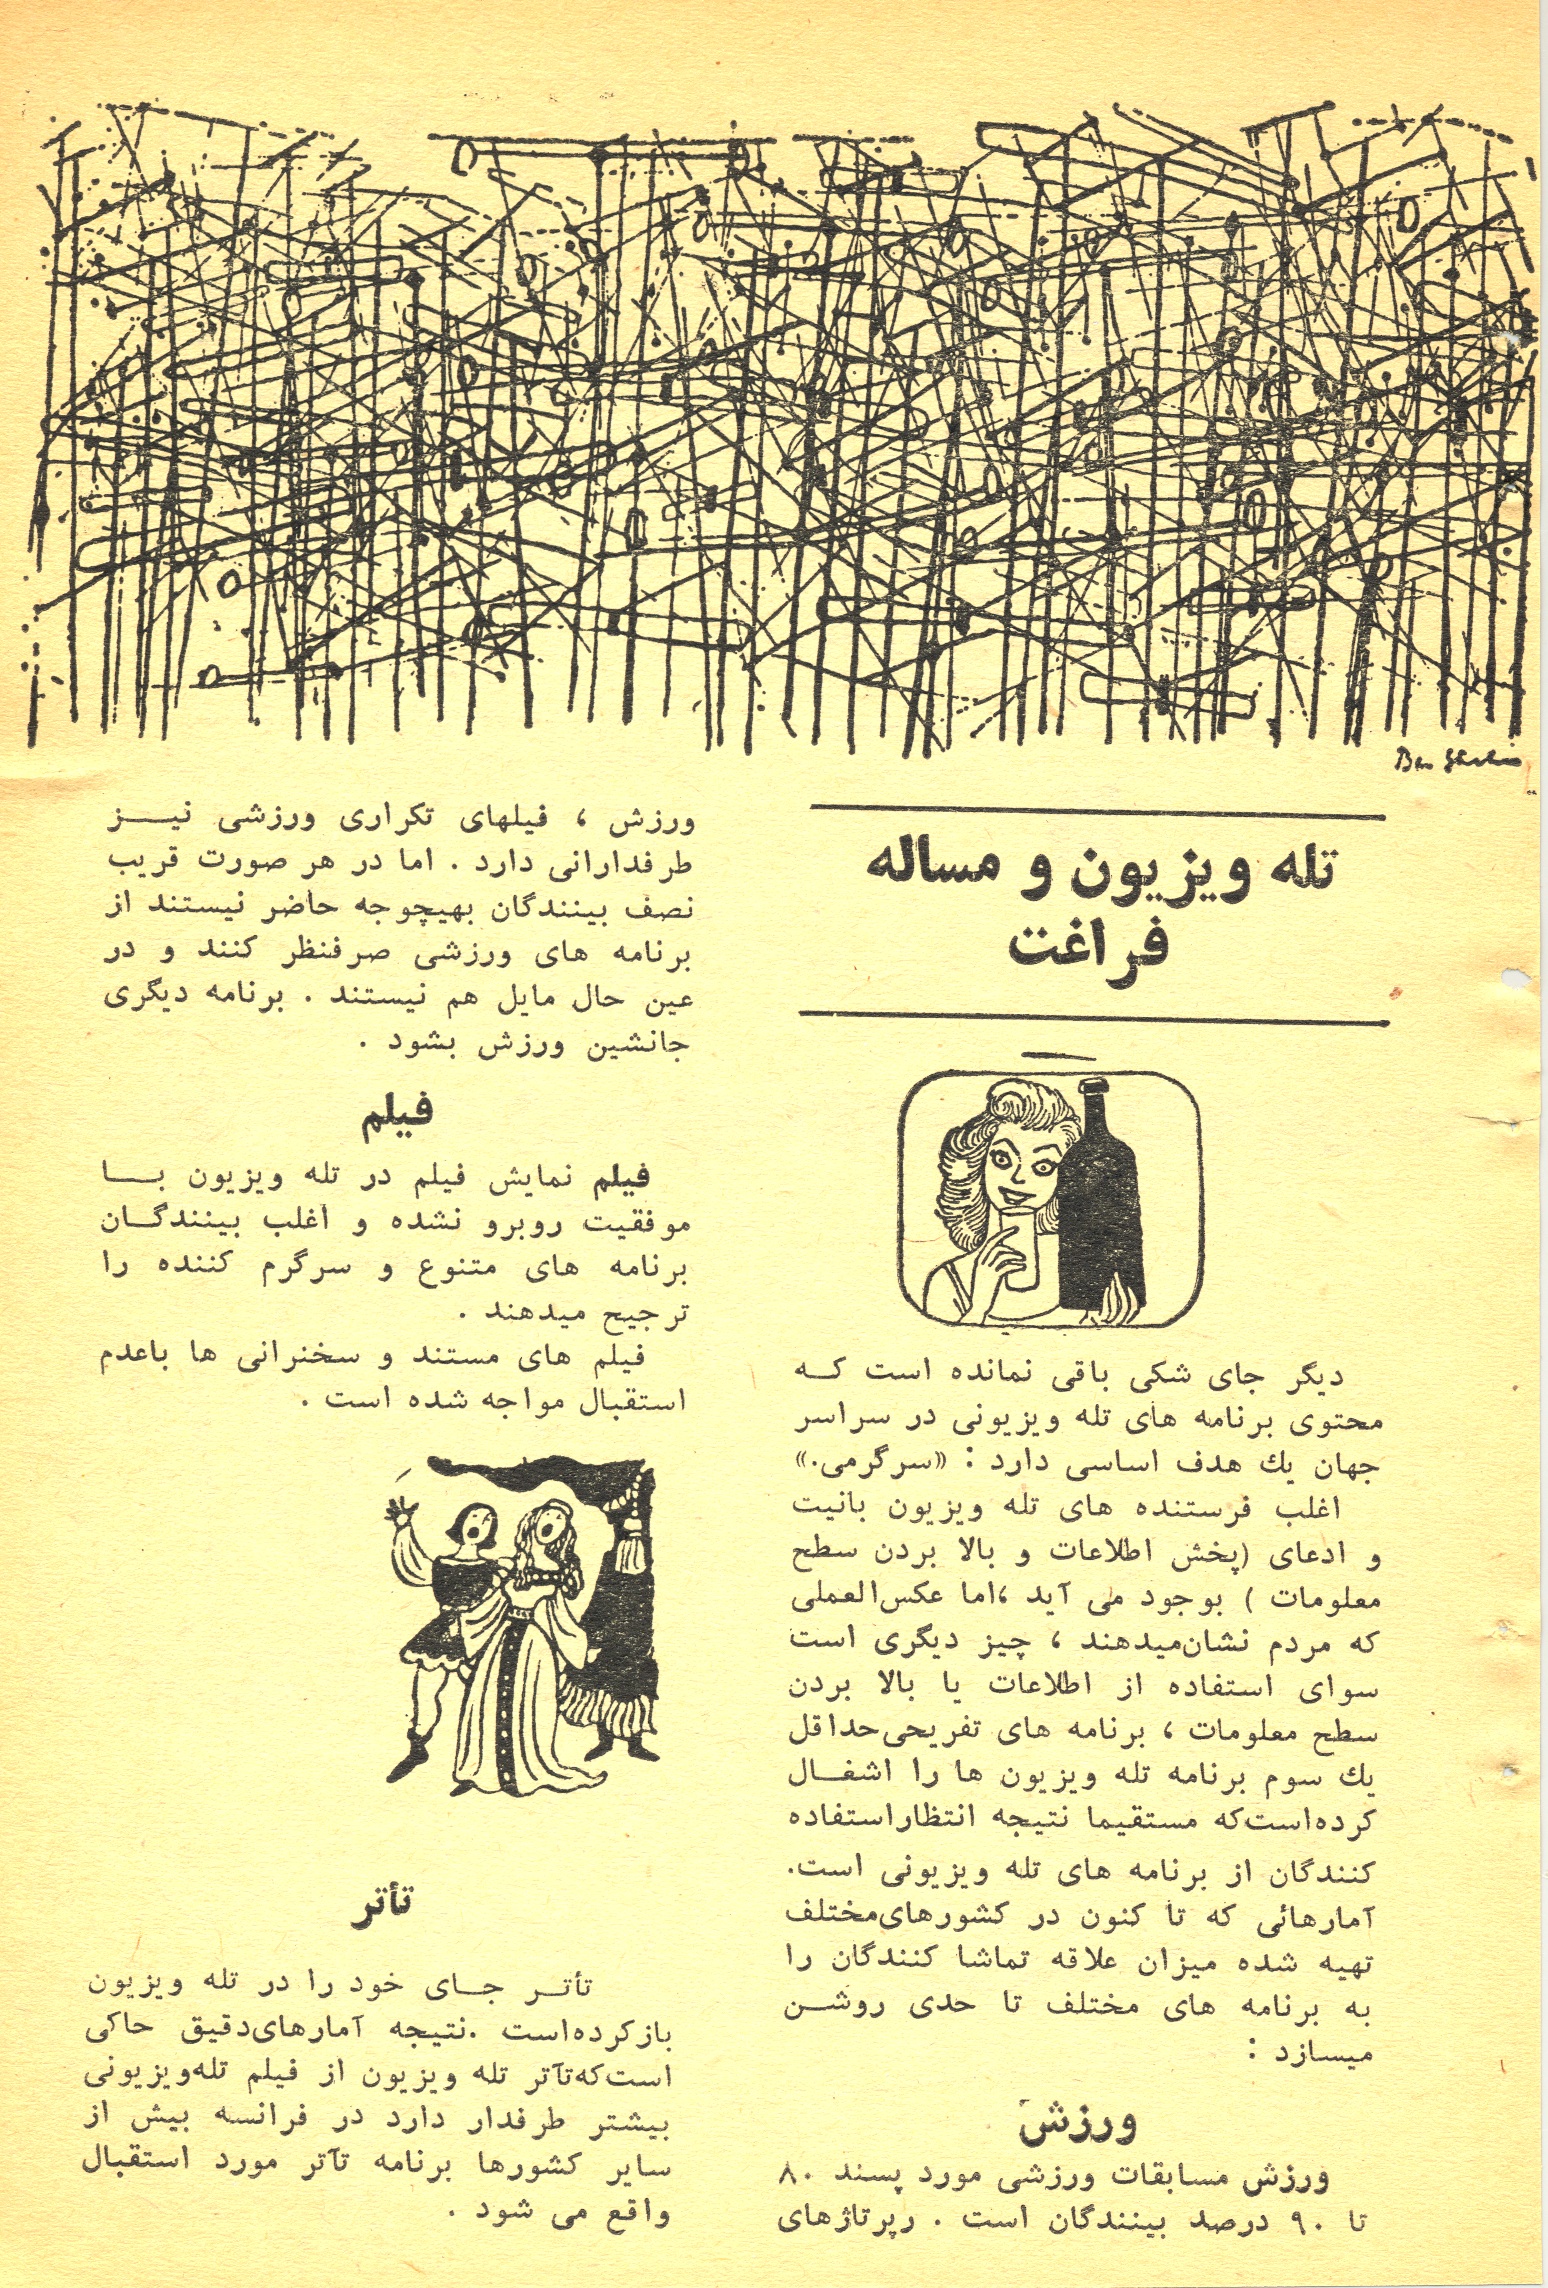 Ben Shahn
تله ویزیون و مساله
فراغت
دیگر جای شکی باقی نمانده است که
محتوی برنامه های تله ویزیونی در سراسر
جهان یك هدف اساسی دارد : «سرگرمی.»
اغلب فرستنده های تله ویزیون بانیت
و ادعای (پخش اطلاعات و بالا بردن سطح
معلومات ) بوجود می آید ،اما عکس‌العملی
که مردم نشان‌میدهند ، چیز دیگری است
سوای استفاده از اطلاعات یا بالا بردن
سطح معلومات ، برنامه های تفریحی‌حداقل
یك سوم برنامه تله ویزیون ها را اشغال
کرده‌است‌که مستقیما نتیجه انتظاراستفاده
کنندگان از برنامه های تله ویزیونی است.
آمارهائی که تا کنون در کشورهای‌مختلف
تهیه شده میزان علاقه تماشا کنندگان را
به برنامه های مختلف تا حدی روشن
میسازد :
ورزش
ورزش مسابقات ورزشی مورد پسند ۸۰
تا ۹۰ درصد بینندگان است . رپرتاژهای
ورزش ، فیلهای تکراری ورزشی نیز
طرفدارانی دارد . اما در هر صورت قریب
نصف بینندگان بهیچوجه حاضر نیستند از
برنامه های ورزشی صرفنظر کنند و در
عین حال مایل هم نیستند . برنامه دیگری
جانشین ورزش بشود .
فیلم
فیلم نمایش فیلم در تله ویزیون با
موفقیت روبرو نشده و اغلب بینندگان
برنامه های متنوع و سرگرم کننده را
ترجیح میدهند .
فیلم های مستند و سخنرانی ها باعدم
استقبال مواجه شده است .
تأتر
تأتر جای خود را در تله ویزیون
بازکرده‌است .نتیجه آمارهای‌دقیق حاکی
است‌که‌تآتر تله ویزیون از فیلم تله‌ویزیونی
بیشتر طرفدار دارد در فرانسه بیش از
سایر کشورها برنامه تآتر مورد استقبال
واقع می شود .